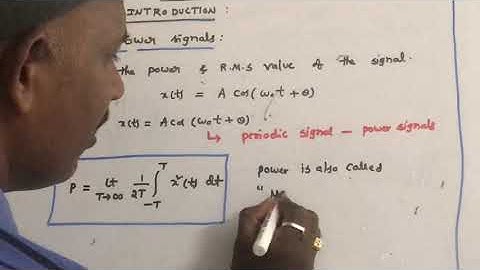 INTRODUCTION :
Power signals :
the power & R.M.S value of the signal.
x(t) = A cos(ω₀t + θ)
x(t) = A cos(ω₀t + θ)
↳ periodic signal – power signals
P = Lt T→∞ 1/2T ∫_{-T}^{T} x²(t) dt
power is also called
" M